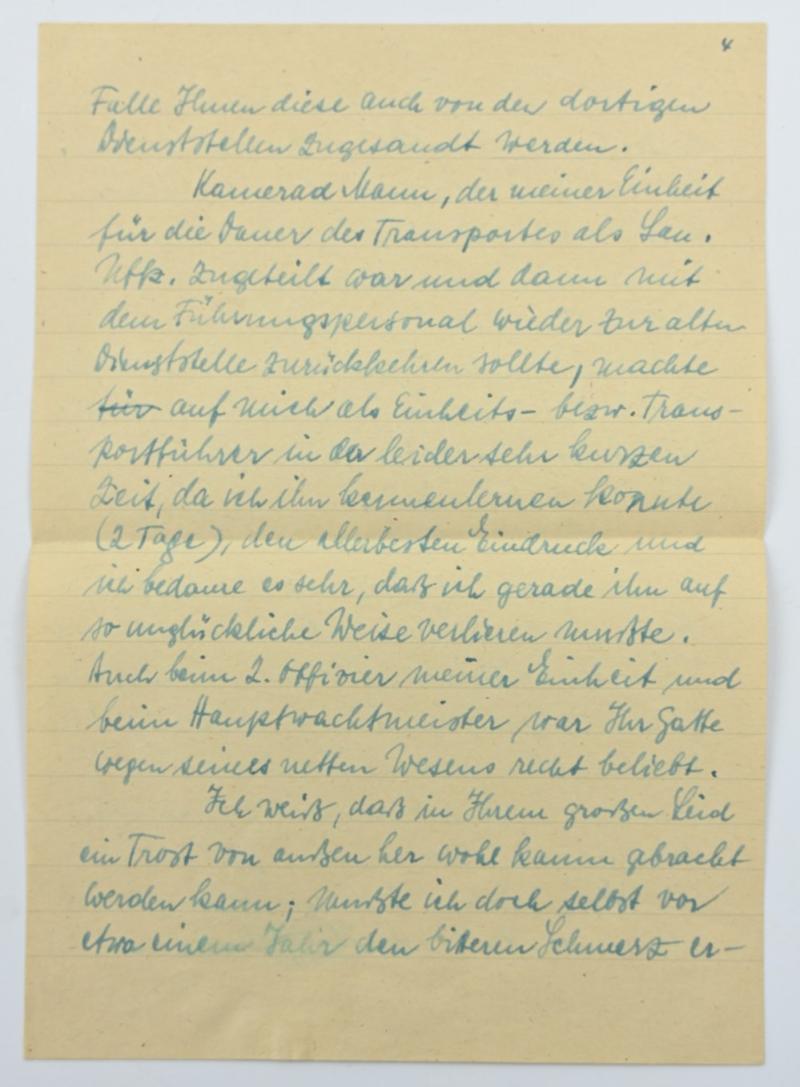 4
Falle Ihnen diese auch von den dortigen
Dienststellen zugesandt werden.
Kamerad Mann, der meiner Einheit
für die Dauer des Transportes als San.
Uffz. zugeteilt war und dann mit
dem Führungspersonal wieder zur alten
Dienststelle zurückkehren sollte, machte
für auf mich als Einheits- bezw. Trans-
portführer in der leider sehr kurzen
Zeit, da ich ihn kennenlernen konnte
(2 Tage), den allerbesten Eindruck und
ich bedaure es sehr, daß ich gerade ihn auf
so unglückliche Weise verlieren mußte.
Auch beim 2. Offizier meiner Einheit und
beim Hauptwachtmeister war Ihr Gatte
wegen seines netten Wesens recht beliebt.
Ich weiß, daß in Ihrem großen Leid
ein Trost von außen her wohl kaum gebracht
werden kann; mußte ich doch selbst vor
etwa einem Jahr den biteren Schmerz er-